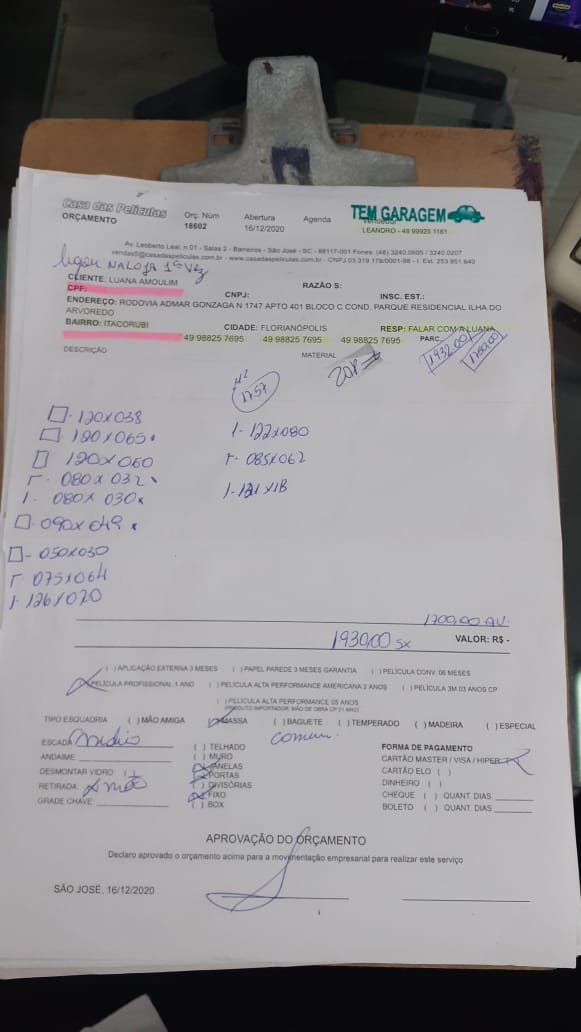 Casa das Películas
Orç. Núm Abertura Agenda TEM GARAGEM
ORÇAMENTO 18602 16/12/2020 Vendedor
LEANDRO - 48 99925 1181
Av. Leoberto Leal, n 01 - Salas 2 - Barreiros - São José - SC - 88117-001 Fones: (48) 3240.0605 / 3240.0207
vendas5@casadaspeliculas.com.br - www.casadaspeliculas.com.br - CNPJ 03.319.178/0001-98 - I. Est. 253.951.640
ligou NA LOJA 1ª Vez
CLIENTE: LUANA AMOULIM RAZÃO S:
CPF: CNPJ: INSC. EST.:
ENDEREÇO: RODOVIA ADMAR GONZAGA N 1747 APTO 401 BLOCO C COND. PARQUE RESIDENCIAL ILHA DO
ARVOREDO
BAIRRO: ITACORUBI CIDADE: FLORIANÓPOLIS RESP: FALAR COM A LUANA
49 98825 7695 49 98825 7695 49 98825 7695 PARC.
1932,00 1700,00
DESCRIÇÃO MATERIAL
M²
1757
120x038
120x065 1-122x080
120x060 085x062
080x032 1-121x118
1-080x030
090x049
050x050
075x064
1-126x020
1700,00 AV.
1930,00 5x VALOR: R$ -
( ) APLICAÇÃO EXTERNA 3 MESES ( ) PAPEL PAREDE 3 MESES GARANTIA ( ) PELÍCULA CONV. 06 MESES
PELÍCULA PROFISSIONAL 1 ANO ( ) PELÍCULA ALTA PERFORMANCE AMERICANA 2 ANOS ( ) PELÍCULA 3M 03 ANOS CP
( ) PELÍCULA ALTA PERFORMANCE 05 ANOS
(PRODUTO IMPORTADOR, MÃO DE OBRA CP 01 ANO)
TIPO ESQUADRIA ( ) MÃO AMIGA MASSA ( ) BAGUETE ( ) TEMPERADO ( ) MADEIRA ( ) ESPECIAL
comum.
ESCADA Médio ( ) TELHADO FORMA DE PAGAMENTO
ANDAIME ( ) MURO CARTÃO MASTER / VISA / HIPER
JANELAS CARTÃO ELO ( )
DESMONTAR VIDRO PORTAS DINHEIRO ( )
RETIRADA ( ) DIVISÓRIAS CHEQUE ( ) QUANT. DIAS
GRADE CHAVE FIXO BOLETO ( ) QUANT. DIAS
( ) BOX
APROVAÇÃO DO ORÇAMENTO
Declaro aprovado o orçamento acima para a movimentação empresarial para realizar este serviço
SÃO JOSÉ, 16/12/2020